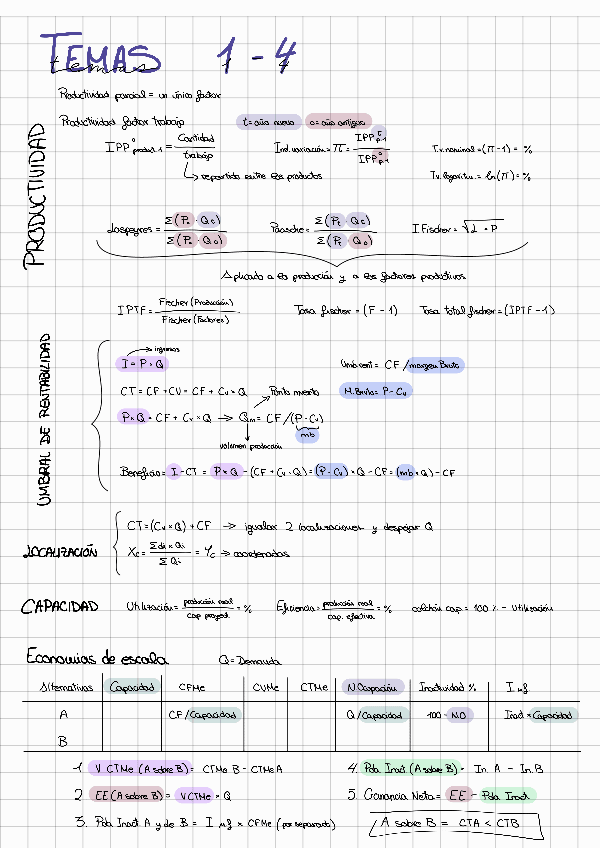 TEMAS 1-4
temas
Productividad parcial = un único factor
PRODUCTIVIDAD
Productividad factor trabajo
t = año nuevo o = año antiguo
IPP⁰ product. 1 = Cantidad / trabajo
↳ repartido entre los productos
Ind. variación = π = IPP / IPP
Tv. nominal = (π - 1) = %
Tv. logaritm. = ln(π) = %
Laspeyres = Σ(P₀ · Qt) / Σ(P₀ · Q₀)
Paasche = Σ(Pt · Qt) / Σ(Pt · Q₀)
I Fischer = √L · P
Aplicado a la producción y a los factores productivos
IPTF = Fischer (Producción) / Fischer (Factores)
Tasa fischer = (F - 1)
Tasa total fischer = (IPTF - 1)
UMBRAL DE RENTABILIDAD
→ ingresos
I = P × Q
Umb. cent = CF / margen Bruto
CT = CF + CV = CF + Cv × Q
Punto muerto
M. Bruto = P - Cv
P × Q = CF + Cv × Q → Qm = CF / (P - Cv)
mb
volumen producción
Beneficio = I - CT = P × Q - (CF + Cv · Q) = (P - Cv) × Q - CF = (mb × Q) - CF
LOCALIZACIÓN
CT = (Cv × Q) + CF → igualar 2 localizaciones y despejar Q
Xc = Σdi × Qi / ΣQi = Yc → coordenadas
CAPACIDAD
Utilización = producción real / cap proyect. = %
Eficiencia = producción real / cap. efectiva = %
colchón cap = 100 % - utilización
Economías de escala
Q = Demanda
Alternativas Capacidad CFMe CVMe CTMe N Ocupación Inactividad % I
A CF / Capacidad Q / Capacidad 100 - NO Inact × Capacidad
B
1. V CTMe (A sobre B) = CTMe B - CTMe A
2. EE (A sobre B) = VCTMe × Q
3. Pda Inact A y de B = I × CFMe (por separado)
4. Pda Inact (A sobre B) = In. A - In. B
5. Ganancia Neta = EE - Pda Inact
A sobre B = CTA < CTB